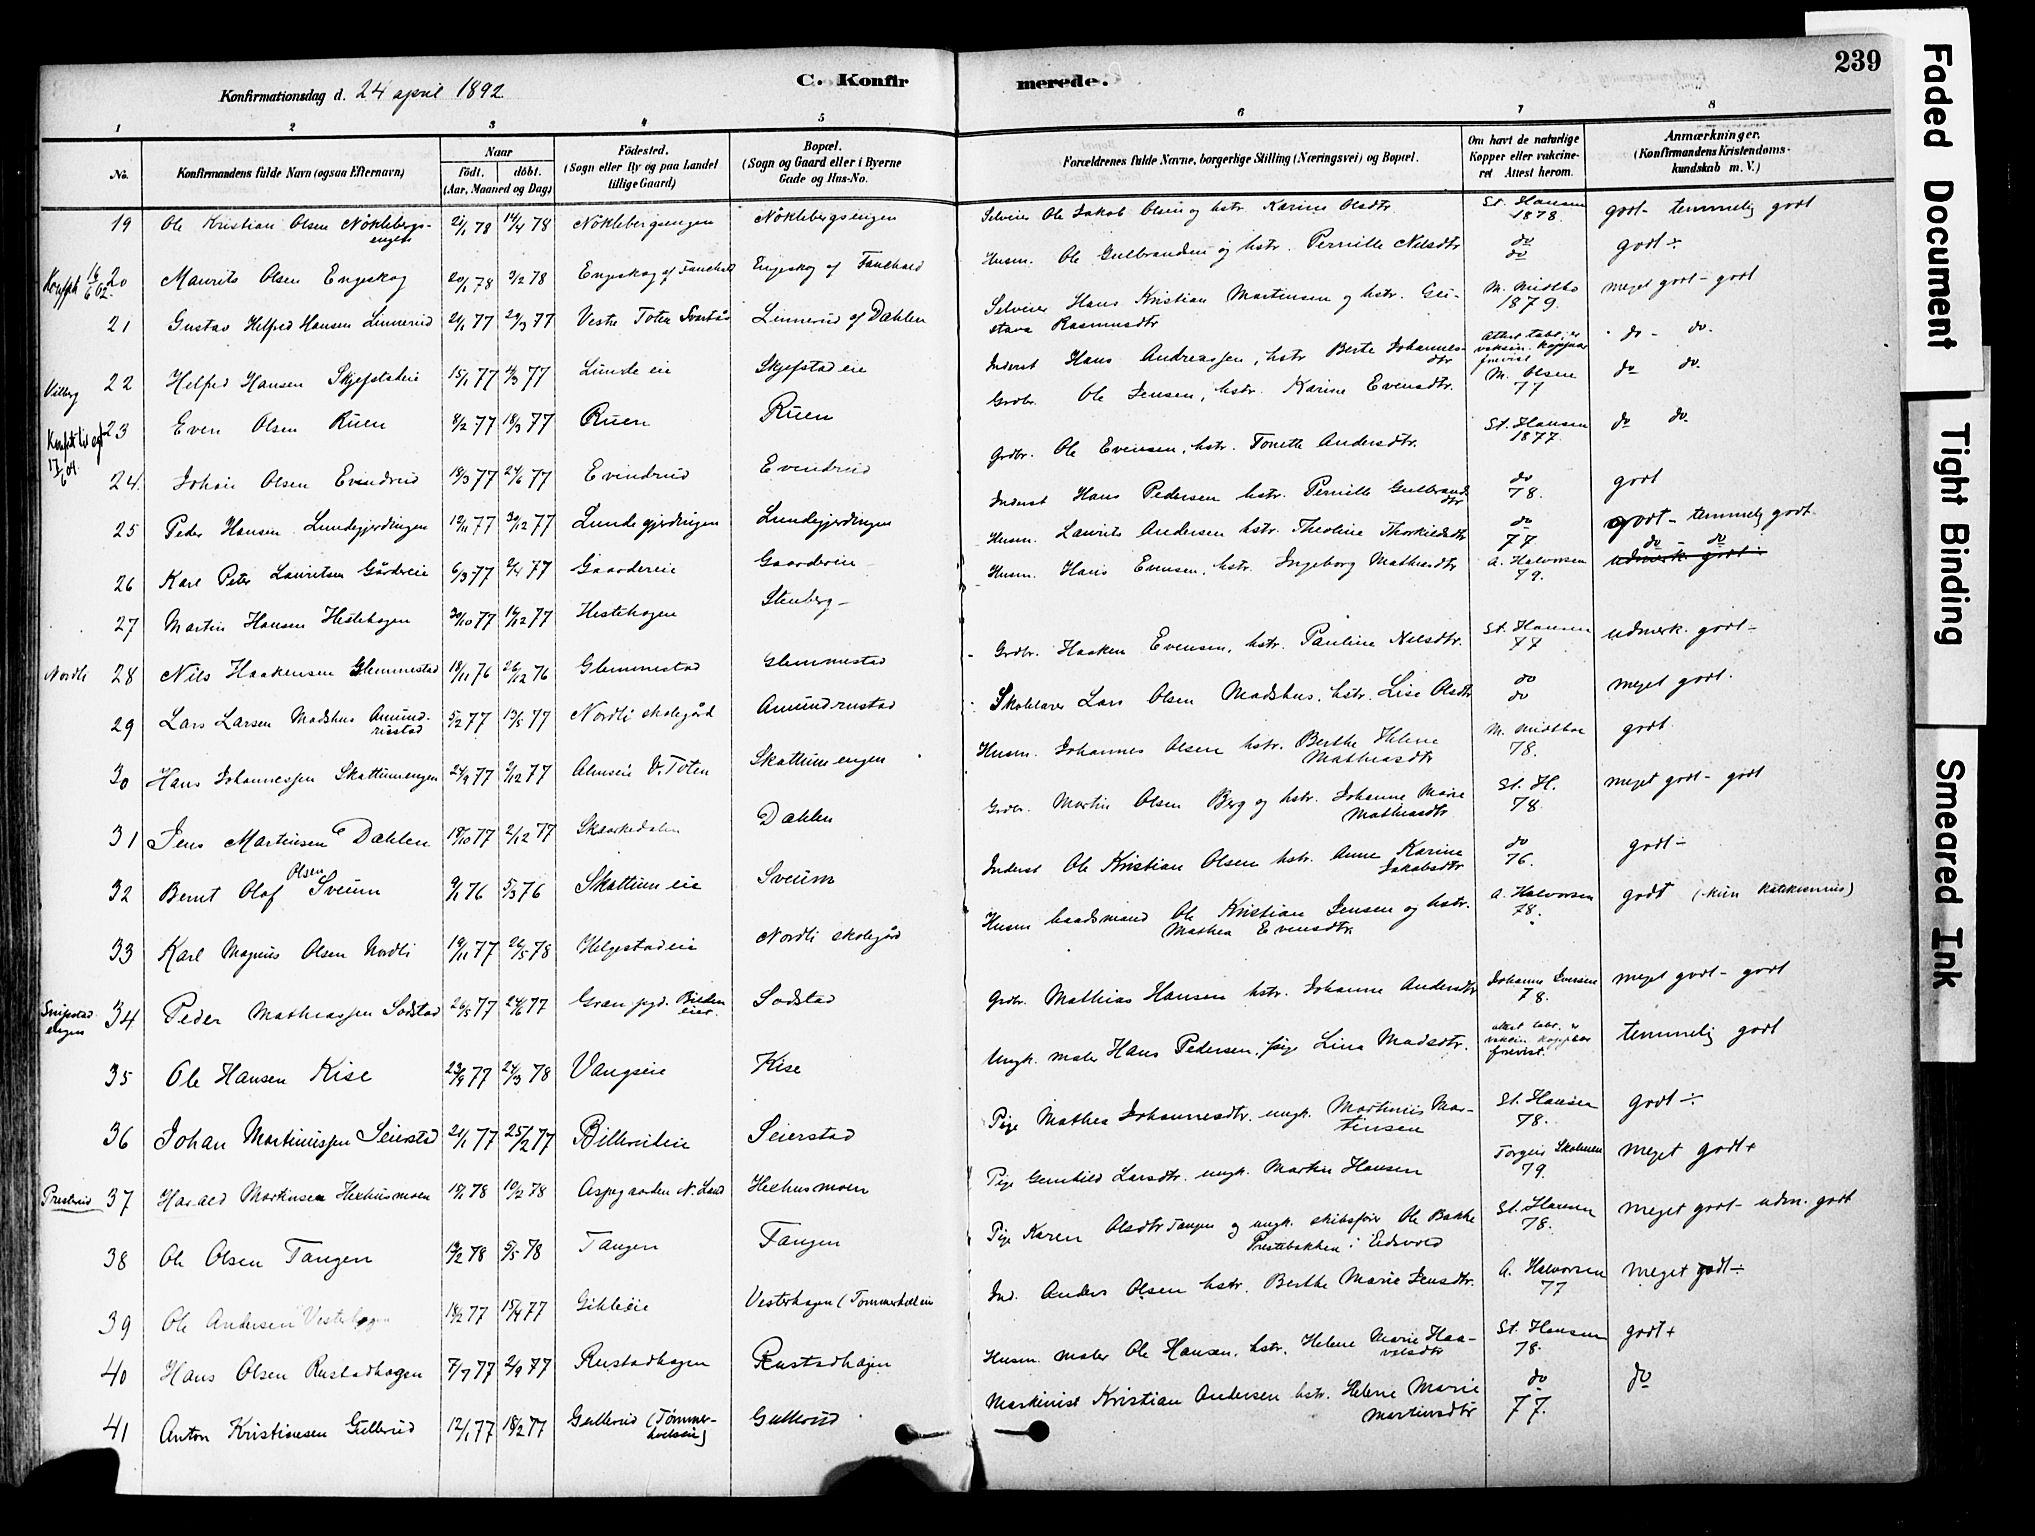 239
Faded Document
Tight Binding
Smeared Ink
Konfirmationsdag d. 24 april 1892
C. Konfirmerede.
1 2 3 4 5 6 7 8
No.
Konfirmandens fulde Navn (ogsaa Efternavn)
Naar
födt. döbt.
(Aar, Maaned og Dag)
Födested.
(Sogn eller By og paa Landet
tillige Gaard)
Bopæl.
(Sogn og Gaard eller i Byerne
Gade og Hus-No.
Forældrenes fulde Navne, borgerlige Stilling (Næringsvei) og Bopæl.
Om havt de naturlige
Kopper eller vakcine-
ret Attest herom.
Anmærkninger.
(Konfirmandens Kristendoms-
kundskab m. V.)
19 Ole Kristian Olsen Nöklebergs-engen 21/1 78 14/4 78 Nöklebergsengen Nöklebergsengen Selveier Ole Jakob Olsen og hstr. Karine Olsdtr. St. Hansen 1878. godt - temmelig godt
20 Maurits Olsen Engeskog 20/1 78 3/2 78 Engeskog af Fauchald Engeskog af Fauchald Husm. Ole Gulbrandsen og hstr. Pernille Nilsdtr do do godt ÷
21 Gustav Helfred Hansen Linnerud 21/1 77 29/3 77 Vestre Toten Linnerud af Dæhlen Selveier Hans Kristian Martensen og hstr. Gustava Rasmusdtr M. Midtbö 1879. meget godt - godt
Vilberg 22 Helfred Hansen Skjefstadeie 15/1 77 4/3 77 Lunde eie Skjefstad eie Inderst Hans Andreassen, hstr Berte Johannesdtr Attest tabt, er vaksin. koppar forevist do - do.
23 Even Olsen Ruen 8/2 77 18/3 77 Ruen Ruen Grdbr. Ole Jensen, hstr. Karine Evensdtr. M. Olsen 77 do do.
24. Johan Olsen Evindrud 18/3 77 24/6 77 Evindrud Evindrud Grdbr. Ole Evensen, hstr. Tonette Andersdtr. St. Hansen 1877. do do.
25 Peder Hansen Lundegjerdingen 19/11 77 30/12 77 Lundegjerdingen Lundegjerdingen Inderst Hans Pedersen hstr. Pernille Gulbrandsdtr do 78. godt
26 Karl Peter Lauritsen Gårdereie 6/3 77 2/4 77 Gaardereie Gaardereie Husm. Laurits Andersen hstr. Theoline Thorkildsdtr do 77 godt - temmelig godt.
27 Martin Hansen Hestehagen 30/10 77 16/12 77 Hestehagen Stenberg Husm. Hans Evensen, hstr. Ingeborg Mathiasdtr A. Halvorsen 79. do - do
Nordli 28 Nils Haakensen Glemmestad 18/11 76 26/12 76 Glemmestad Glemmestad Grdbr. Haaken Evensen, hstr. Pauline Nilsdtr. St. Hansen 77 udmerk. godt -
29 Lars Larsen Madshus Amundrustad 5/2 77 13/5 77 Nordli skolegård Amundrustad Skolelærer Lars Olsen Madshus, hstr. Lise Olsdtr do do meget godt.
30 Hans Johannessen Skattumengen 24/9 77 2/12 77 Alm eie V. Toten Skattumengen Husm. Johannes Olsen hstr. Berthe Helene Mathiasdtr M. Midtbö 78. godt
31 Jens Martinsen Dæhlen 18/10 77 2/12 77 Skarkedalen Dæhlen Grdbr. Martin Olsen Berg og hstr. Johanne Marie Mathiasdtr St. H. 78. meget godt - godt
32 Bernt Olaf Olsen Sveum 9/1 76 5/3 76 Skattum eie Sveum Inderst Ole Kristian Olsen hstr. Anne Karine Jakobsdtr do 76. godt ÷
33 Karl Magnus Olsen Nordli 19/11 77 26/5 78 Helgestadeie Nordli skolegård Husm baadsmand Ole Kristian Jensen og hstr. Mathea Evensdtr. A. Halvorsen 78. godt (kun katekismus)
34 Peder Mathiassen Sodstad 26/5 77 24/6 77 Gran pgd. Sodstad Grdbr. Mathias Hansen hstr. Johanne Andersdtr Johannes Iversen 78. meget godt - godt
35 Ole Hansen Kise 23/9 77 24/3 78 Vangseie Kise Ungk. maler Hans Pedersen, pige Lina Madsdtr. attest tabt, er vaksin koppar forevist. temmelig godt
36 Johan Martinussen Seierstad 21/1 77 25/2 77 Billerudeie Seierstad Pige Mathea Johannesdtr. ungk. Martinus Martinsen St. Hansen 78. godt ÷
Presterud 37 Harald Martinsen Hexhusmoen 17/1 78 10/2 78 Aspegaarden N. Land Hexhusmoen Pige Gunhild Larsdtr. ungk. Martin Hansen 79. meget godt +
38 Ole Olsen Tangen 19/2 78 5/5 78 Tangen Tangen Pige Karen Olsdtr Tangen og ungk. skibsförer Ole Bakke Prestebakken i Eidsvold St. Hansen 78. meget godt - udm. godt
39 Ole Andersen Vesterhagen 18/2 77 15/4 77 Gihleeie Vesterhagen (Tömmerholeie Ind. Anders Olsen hstr. Berthe Marie Jensdtr. A. Halvorsen 77 meget godt ÷
40 Hans Olsen Rustadhagen 7/7 77 2/9 77 Rustadhagen Rustadhagen Husm. maler Ole Hansen. hstr. Helene Marie Haavelsdtr St. Hansen 78. godt +
41 Anton Kristiansen Gullerud 12/1 77 18/2 77 Gullerud (Tömmerholseie) Gullerud Maskinist Kristian Andersen hstr. Helene Marie Martinsdtr do 77. do